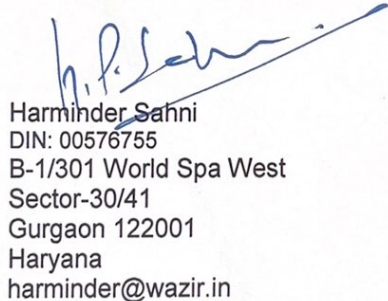 Harminder Sahni
DIN: 00576755
B-1/301 World Spa West
Sector-30/41
Gurgaon 122001
Haryana
harminder@wazir.in